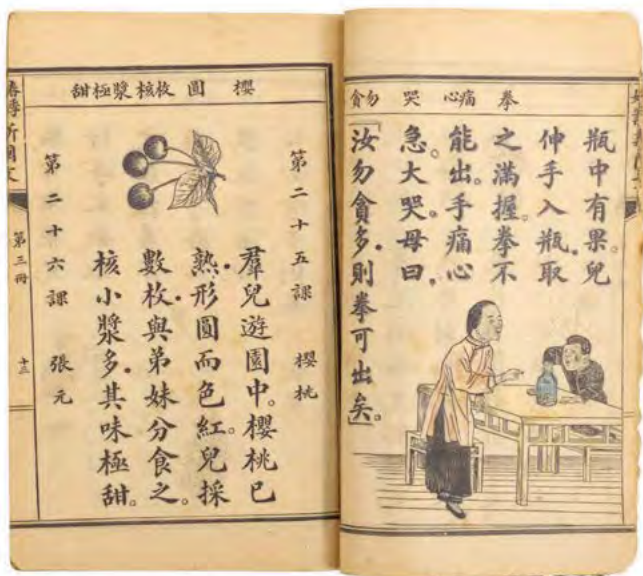 拳 痛心 哭 勿貪
瓶中有果。兒
伸手入瓶。取
之滿握。拳不
能出。手痛心
急。大哭。母曰。
「汝勿貪多。則拳可出矣。」
櫻 圓 枚核漿極甜
第二十五課 櫻桃
羣兒遊園中。櫻桃已
熟。形圓而色紅。兒採
數枚。與弟妹分食之。
核小漿多。其味極甜。
第二十六課 張元
季新國文
第三冊
十三